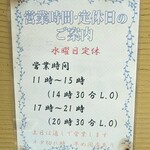 営業時間・定休日の
ご案内
水曜日定休
営業時間
11時〜15時
(14時30分L.O)
17時〜21時
(20時30分L.O)